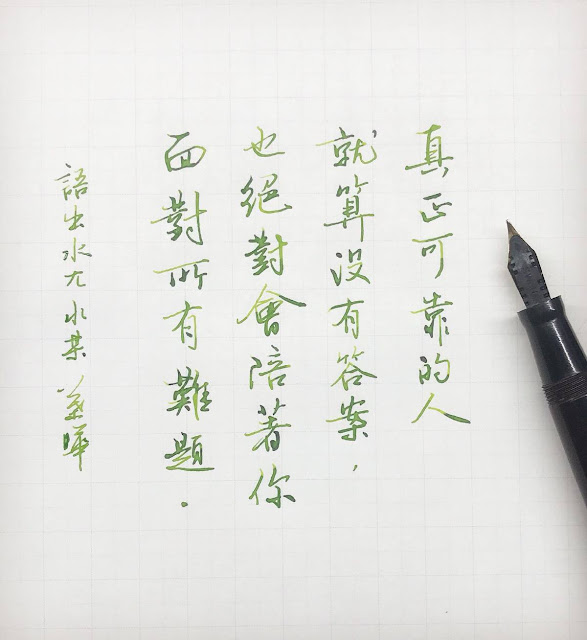 真正可靠的人
就算沒有答案，
也絕對會陪著你
面對所有難題．
語出水尢水某